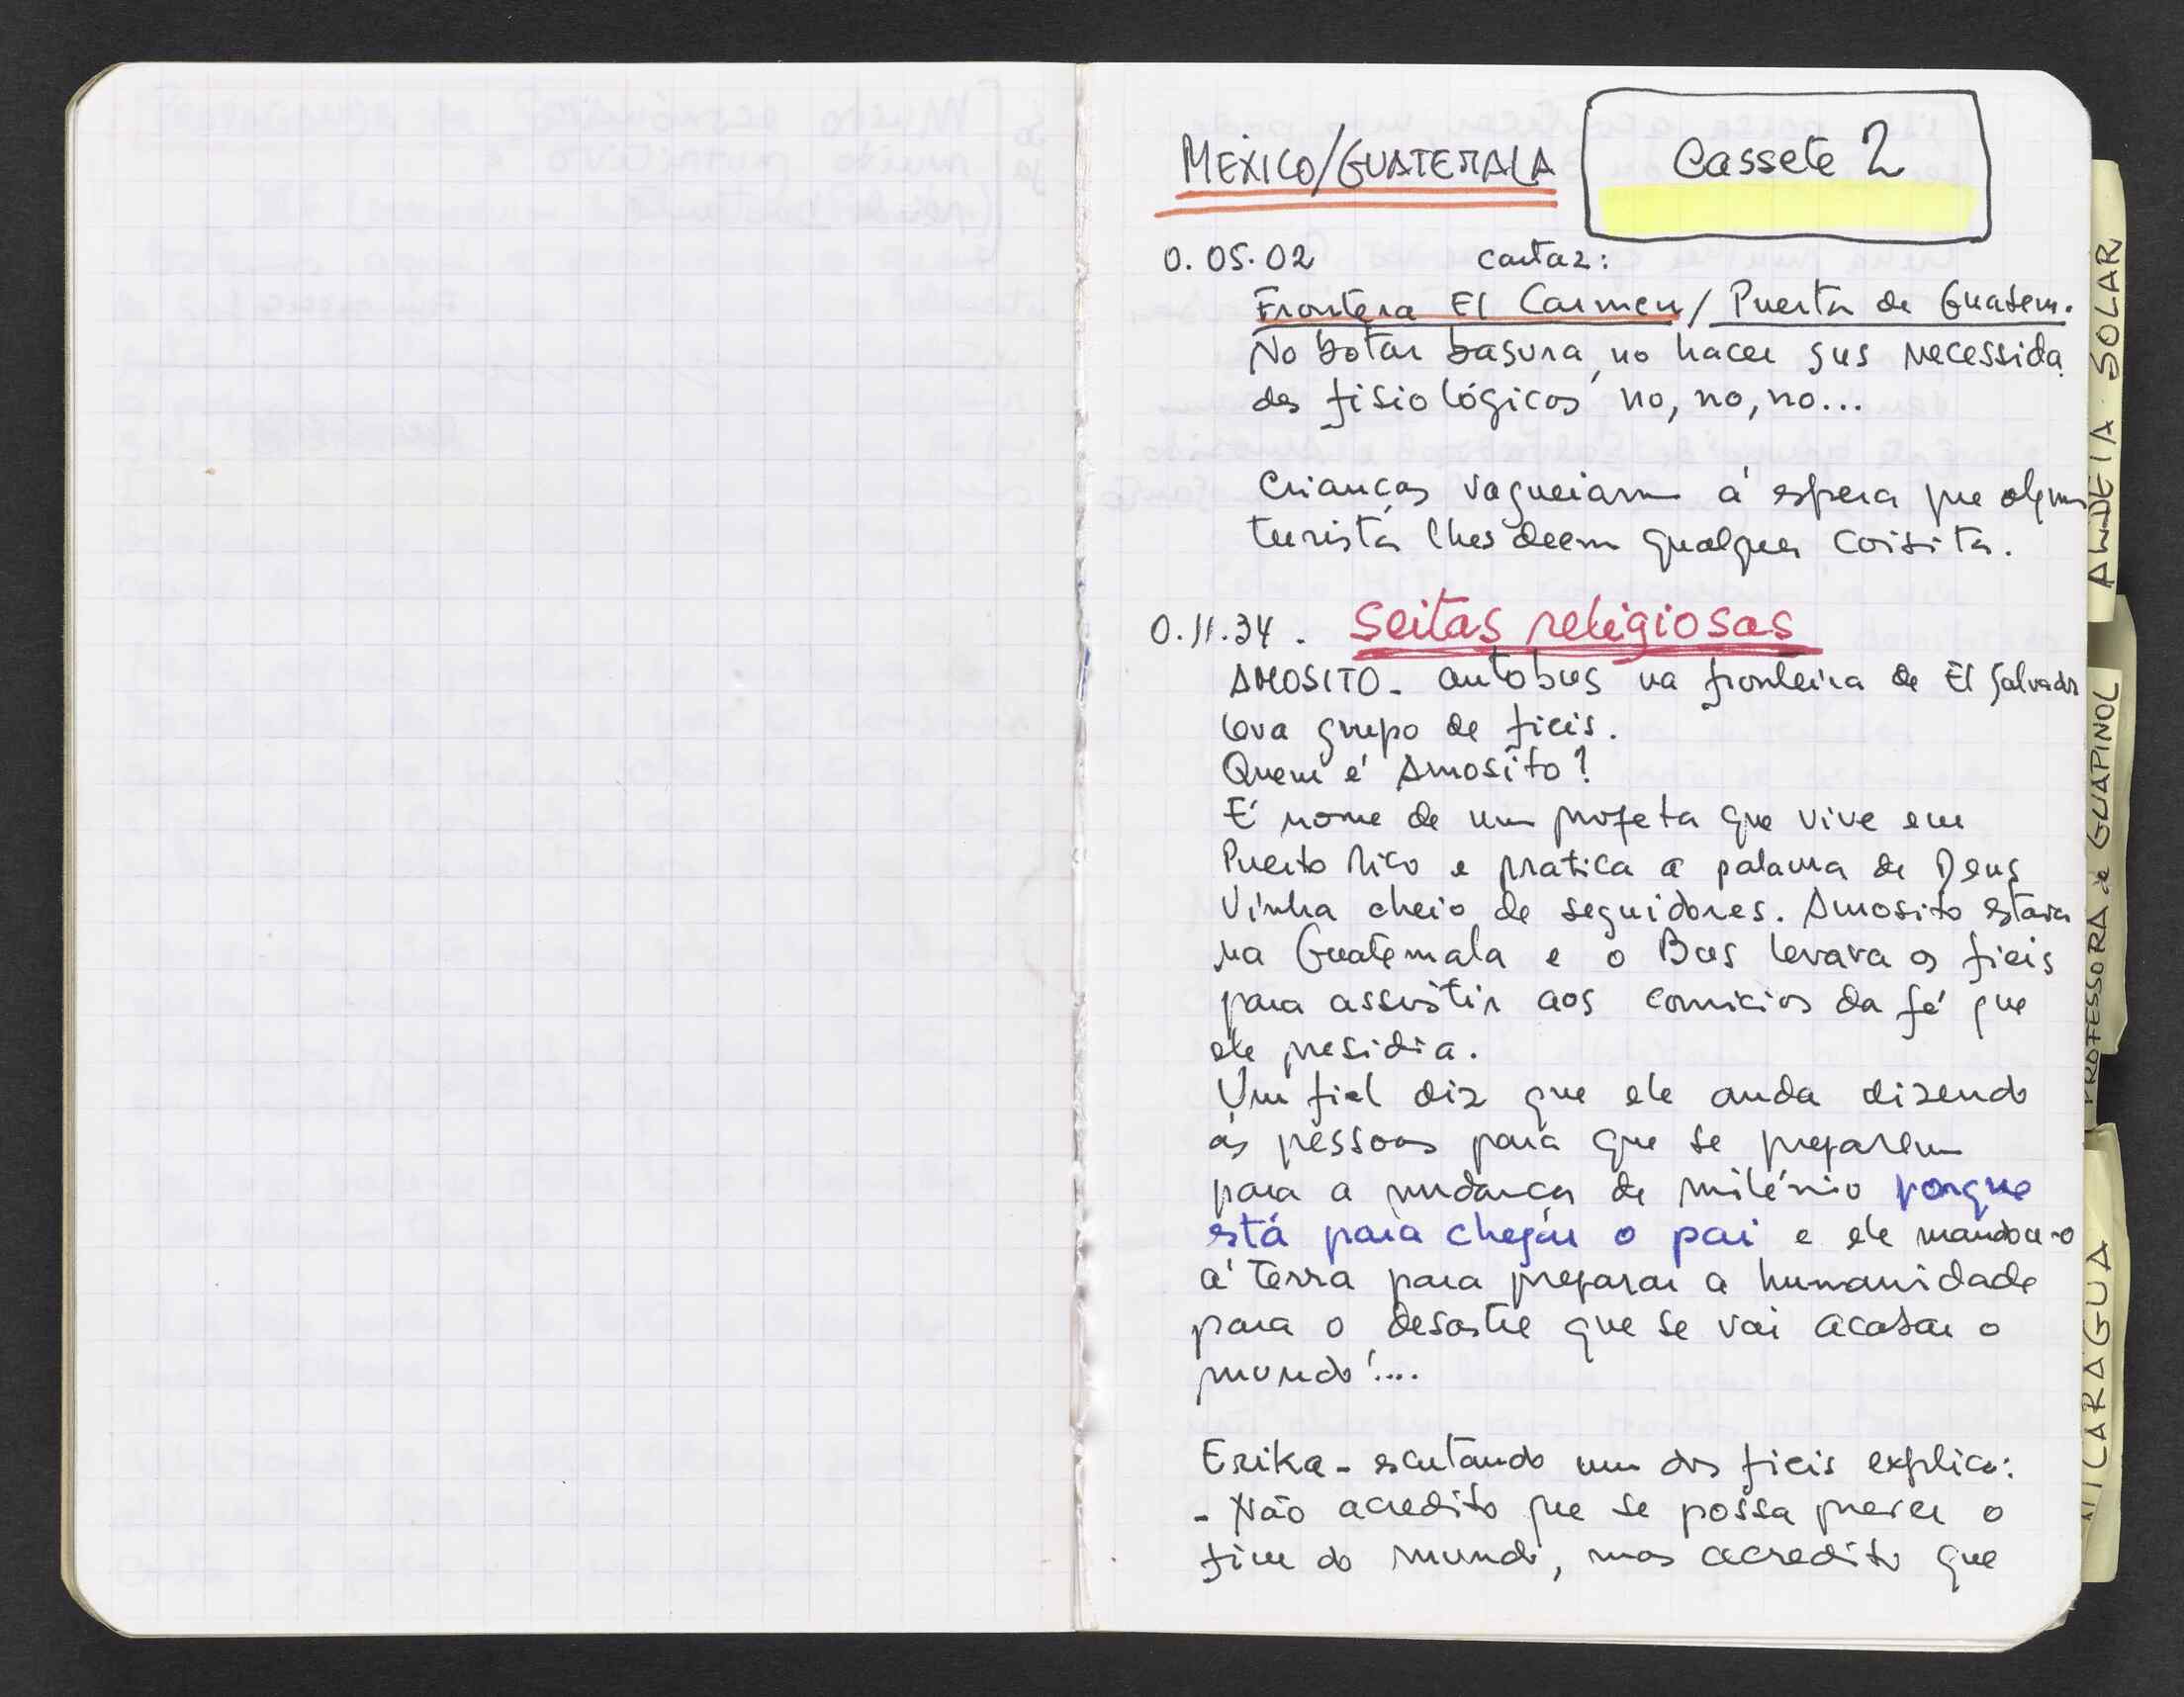 MEXICO/GUATEMALA
Cassete 2
0.05.02 cartaz:
Frontera El Carmen/Puerta de Guatem.
No botar basura, no hacer sus necessida
des fisiológicos no, no, no...
Crianças vagueiam á espera que algum
turista lhes deem qualquer coisita.
0.11.34. Seitas religiosas
AMOSITO - autobus na fronteira de El Salvador
leva grupo de fieis.
Quem é Amosito?
É nome de um profeta que vive em
Puerto Rico e pratica a palavra de Deus
Vinha cheio de seguidores. Amosito estava
na Guatemala e o Bus levava os fieis
para assistir aos comicios da fé que
ele presidia.
Um fiel diz que ele anda dizendo
ás pessoas para que se preparem
para a mudança de milénio porque
está para chegar o pai e ele mandou-o
á terra para preparar a humanidade
para o desastre que se vai acabar o
mundo!...
Erika - escutando um dos fieis explica:
- Não acredito que se possa prever o
fim do mundo, mas acredito que
ALDEIA SOLAR
PROFESSORA de GUAPINOL
NICARAGUA